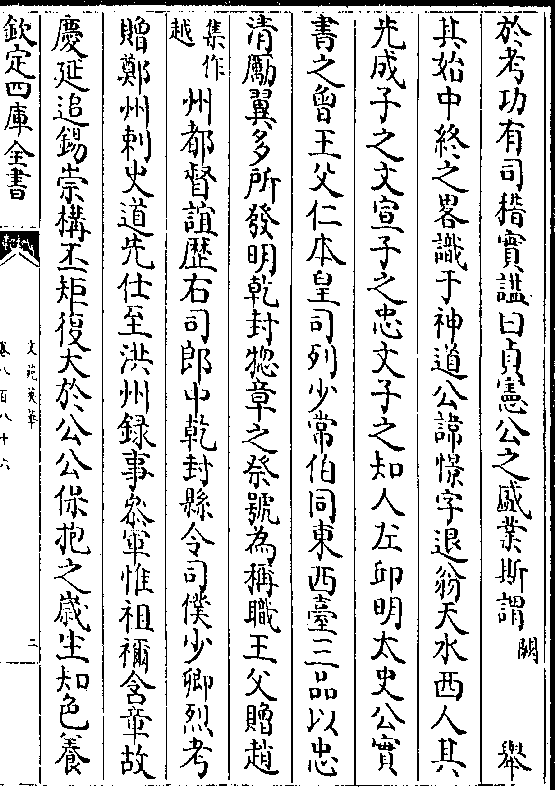 於考功有司稽實諡曰貞憲公之盛業斯謂闕舉
其始中終之畧識于神道公諱憬字退翁天水西人其
先成子之文宣子之忠文子之知人左邱明太史公實
書之曾王父仁本皇司列少常伯同東西臺三品以忠
清勵翼多所發明乾封惣章之祭號為稱職王父贈趙
集作越州都督誼歴右司郎中乾封縣令司僕少卿烈考
贈鄭州刺史道先仕至洪州録事叅軍惟祖禰含章故
慶延追錫崇構丕矩復大於公公保抱之嵗生知色養
欽定四庫全書
文苑英華
卷八百八十六
三